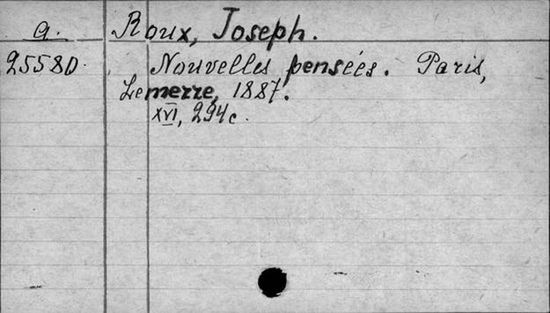 a. Roux, Joseph.
25580. Nouvelles pensées. Paris,
Lemerre, 1887.
XVI, 294 c.